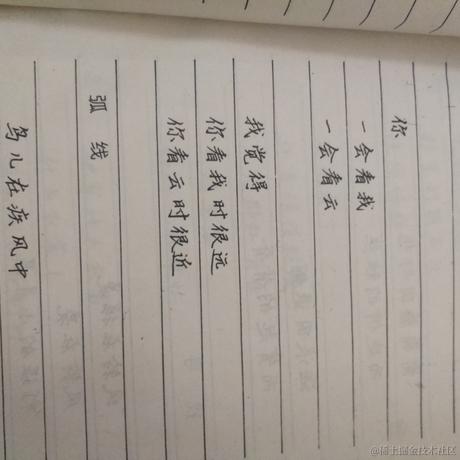 你
一会看我
一会看云
我觉得
你看我时很远
你看云时很近
弧线
鸟儿在疾风中
@稀土掘金技术社区